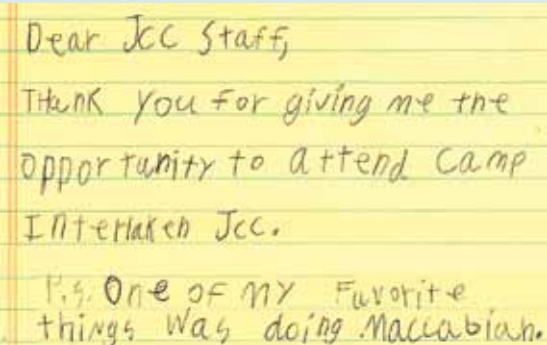 Dear JCC Staff,
THank you for giving me the
opportunity to attend camp
Interlaken Jcc.
P.S. One of my Favorite
things was doing Maccabiah.